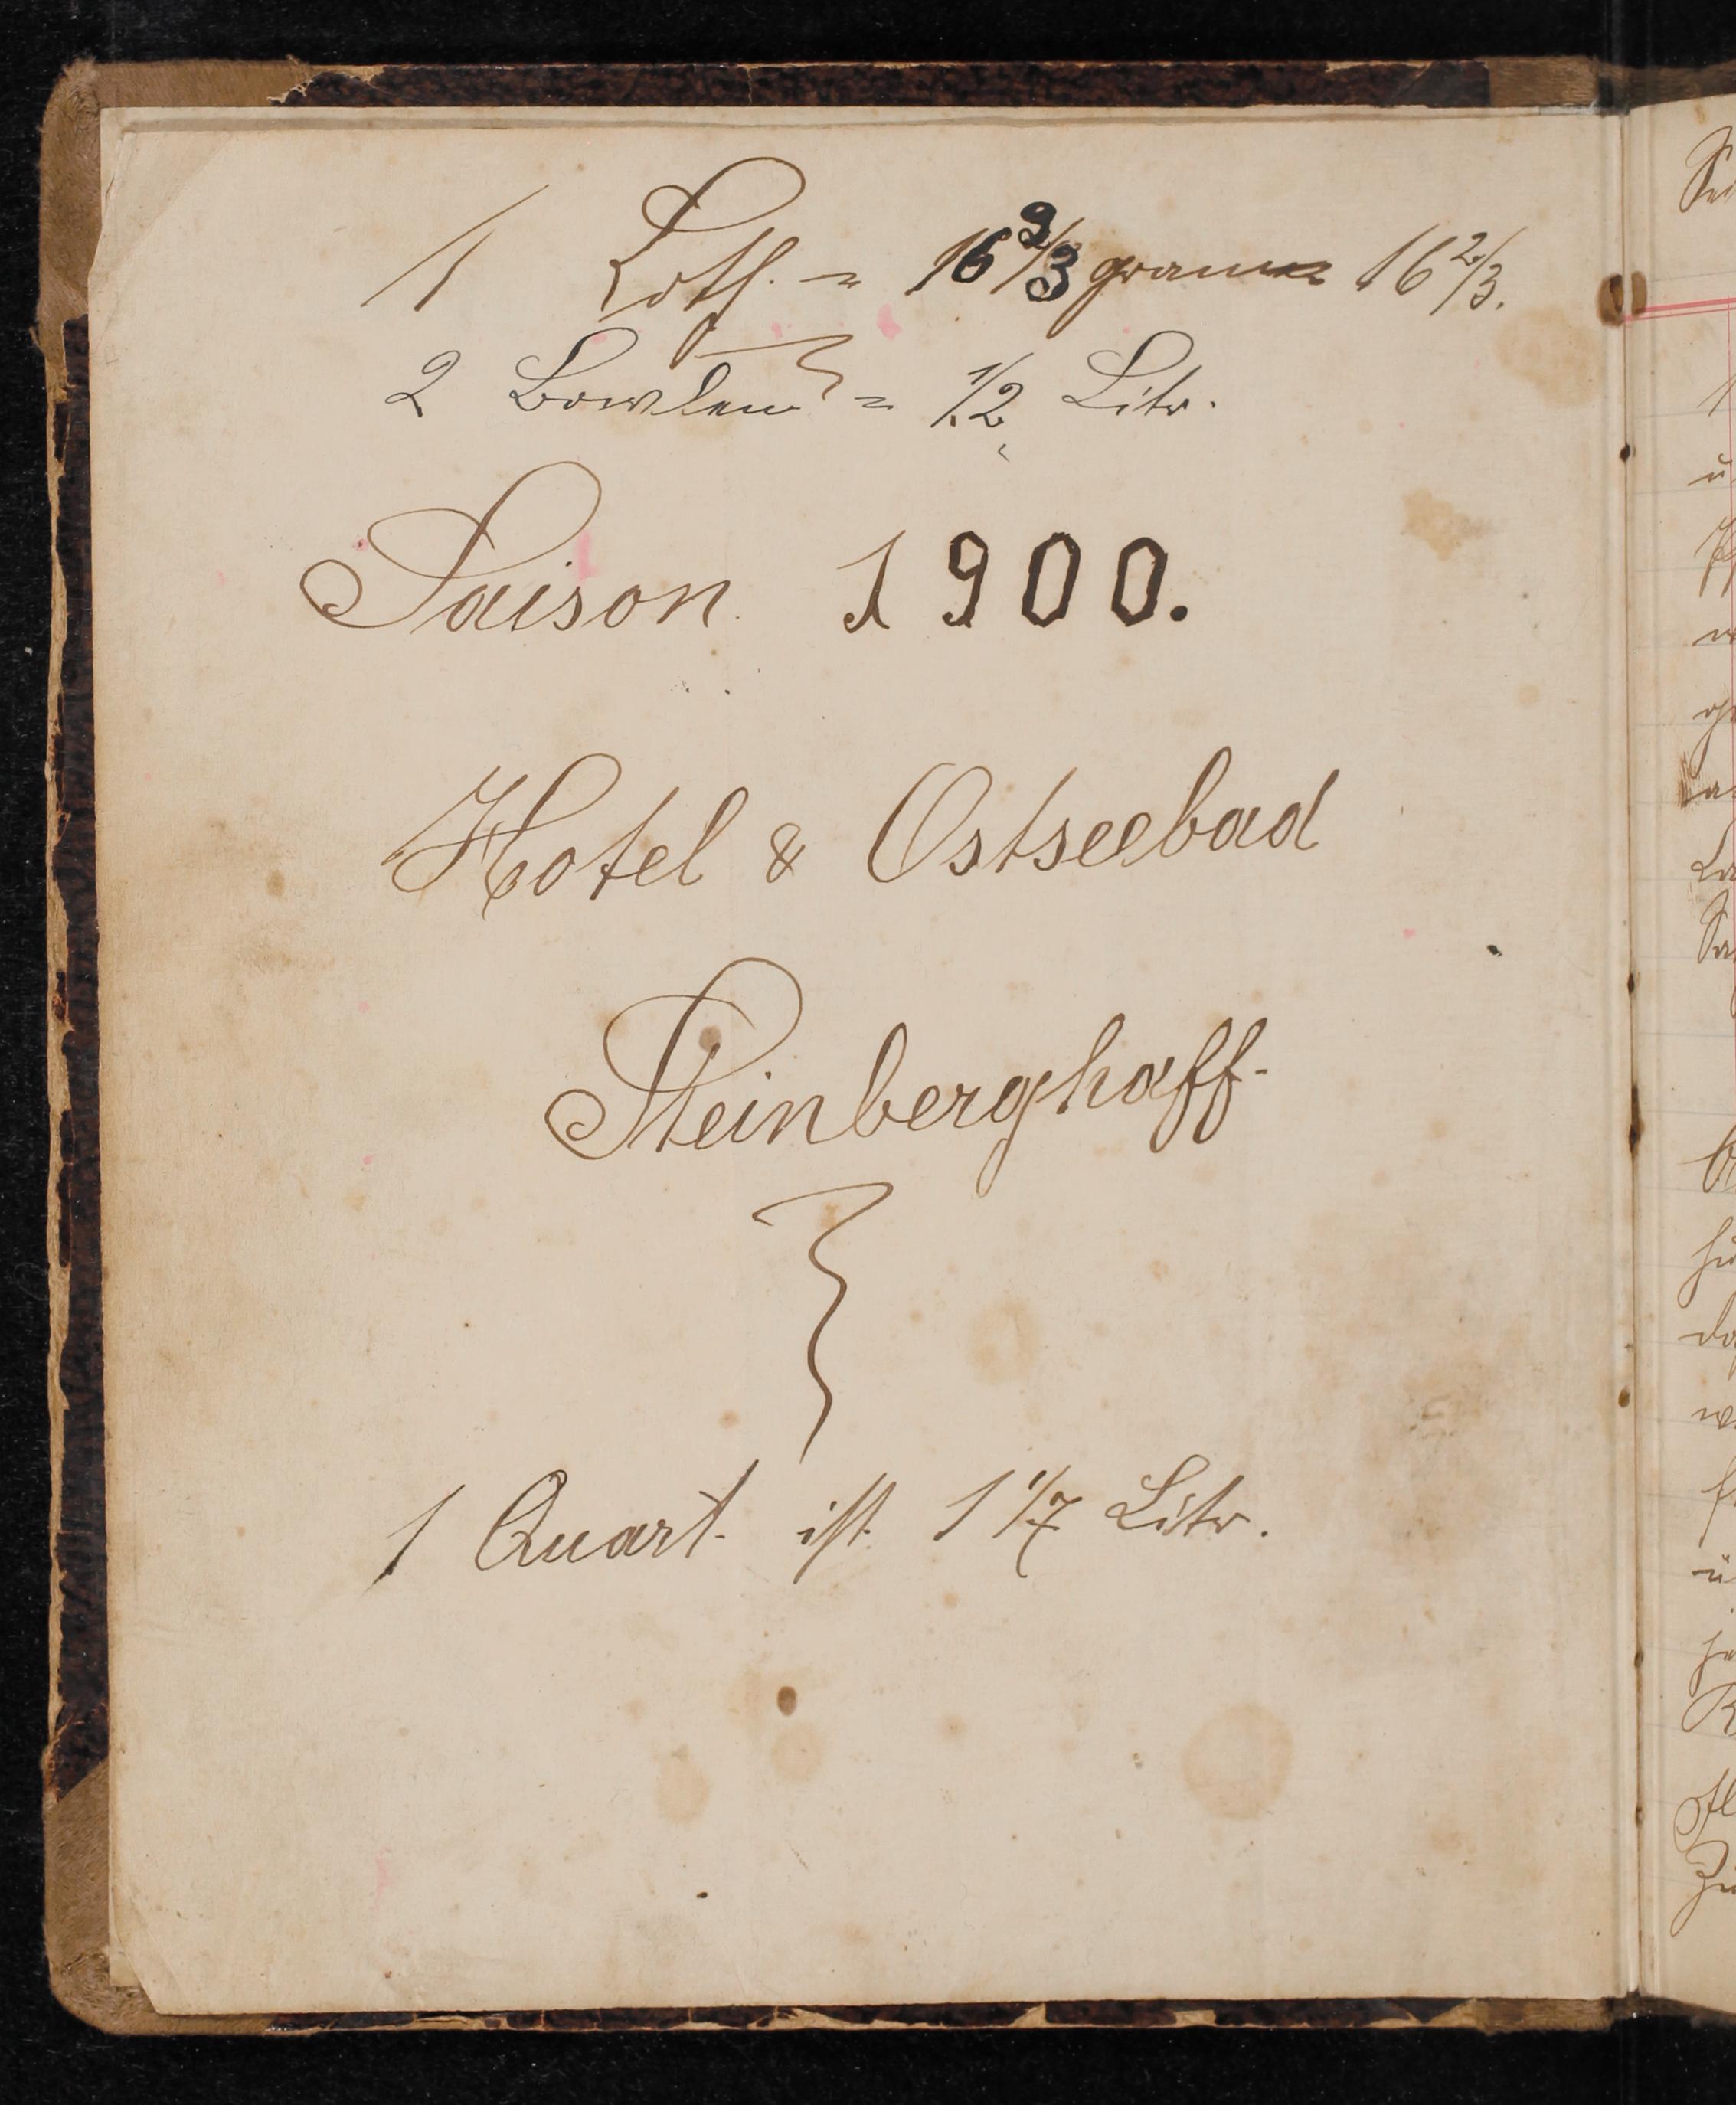 1 Loth. = 16 2/3 gramm 16 2/3.
2 Bowlen = 1/2 Litr.
Saison 1900.
Hotel & Ostseebad
Steinberghaff
1 Quart ist 1 1/7 Litr.